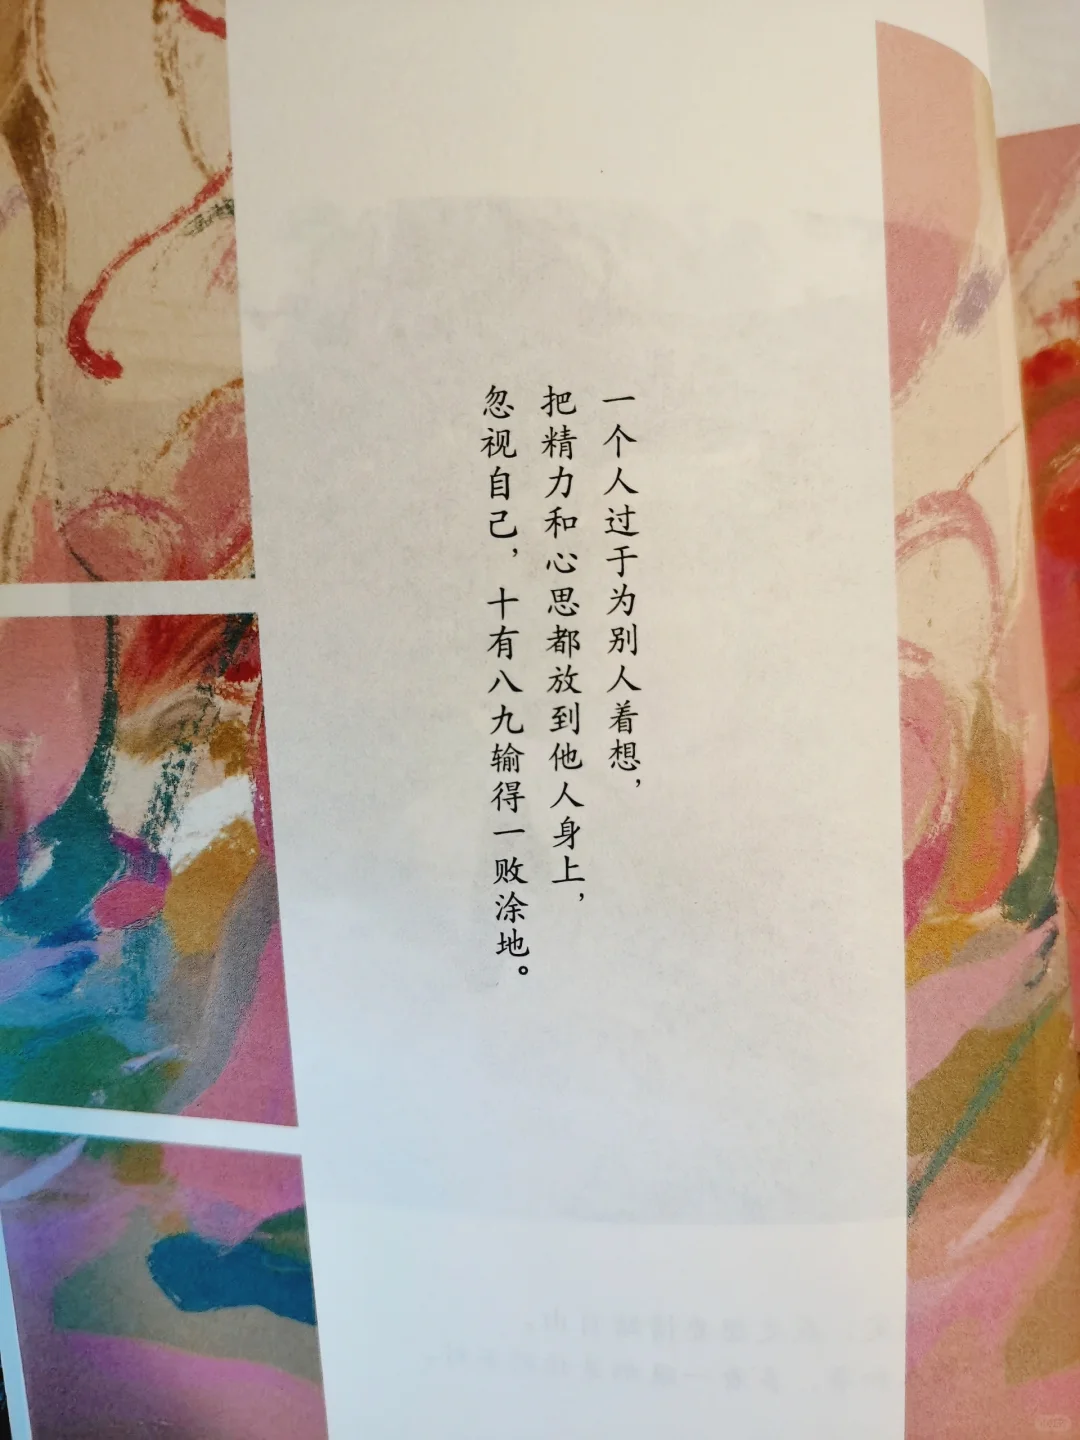 一个人过于为别人着想，
把精力和心思都放到他人身上，
忽视自己，十有八九输得一败涂地。